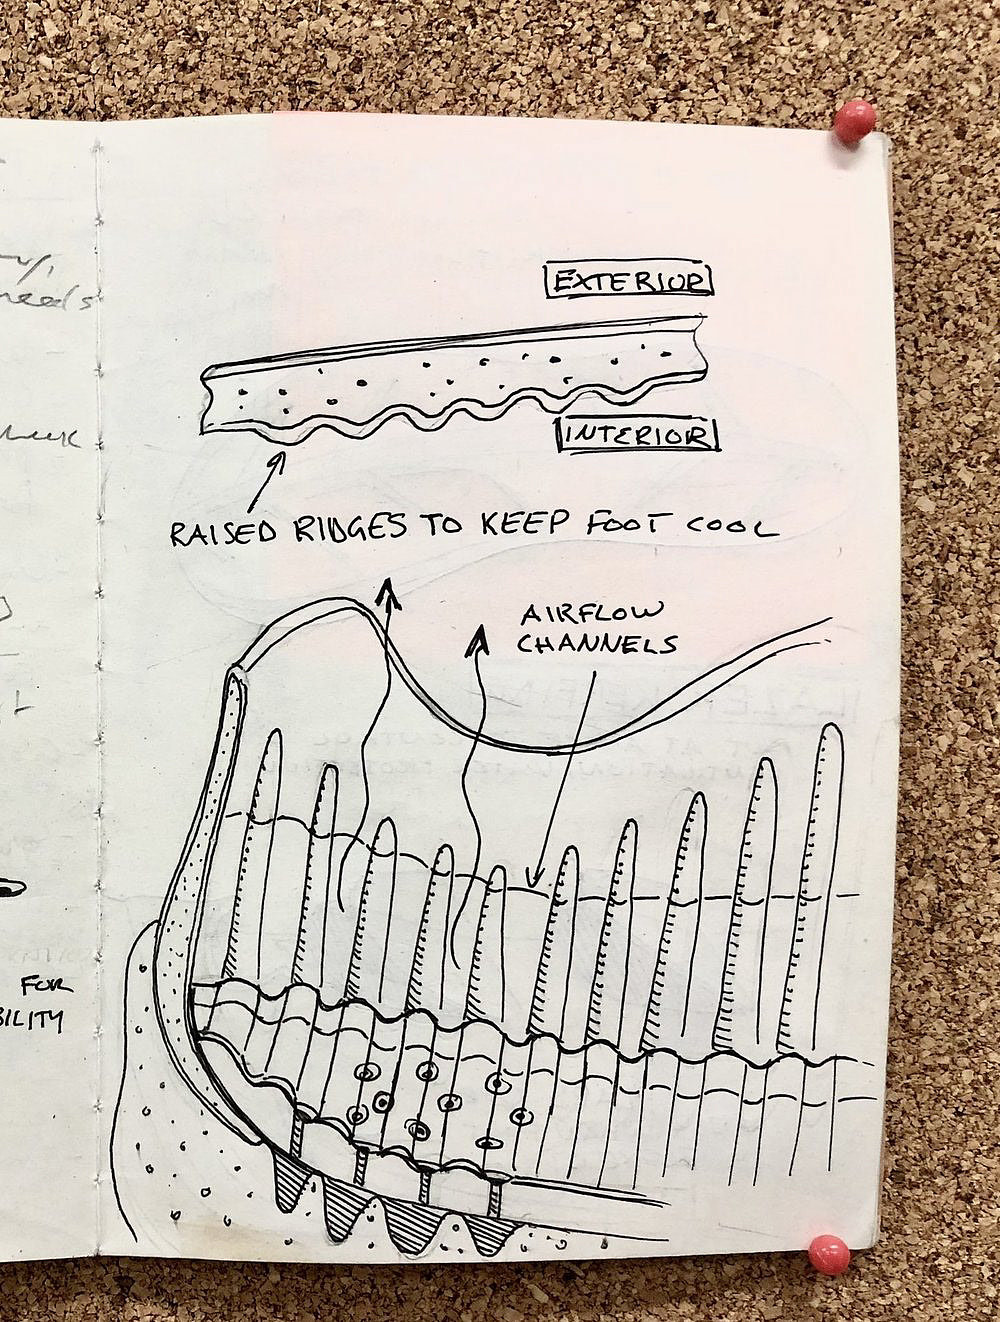 needs
FOR
EXTERIOR
INTERIOR
RAISED RIDGES TO KEEP FOOT COOL
AIRFLOW
CHANNELS